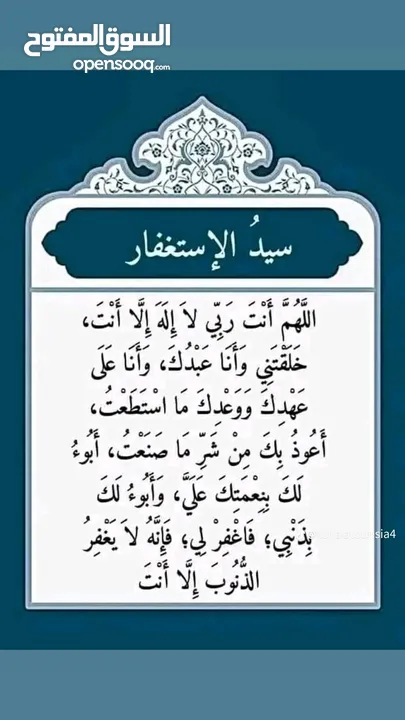 السوق المفتوح
opensooq.com
سيدُ الإستغفار
اللَّهُمَّ أَنْتَ رَبِّي لاَ إِلَهَ إِلَّا أَنْتَ،
خَلَقْتَنِي وَأَنَا عَبْدُكَ، وَأَنَا عَلَى
عَهْدِكَ وَوَعْدِكَ مَا اسْتَطَعْتُ،
أَعُوذُ بِكَ مِنْ شَرِّ مَا صَنَعْتُ، أَبُوءُ
لَكَ بِنِعْمَتِكَ عَلَيَّ، وَأَبُوءُ لَكَ
بِذَنْبِي؛ فَاغْفِرْ لِي؛ فَإِنَّهُ لاَ يَغْفِرُ
الذُّنُوبَ إِلَّا أَنْتَ